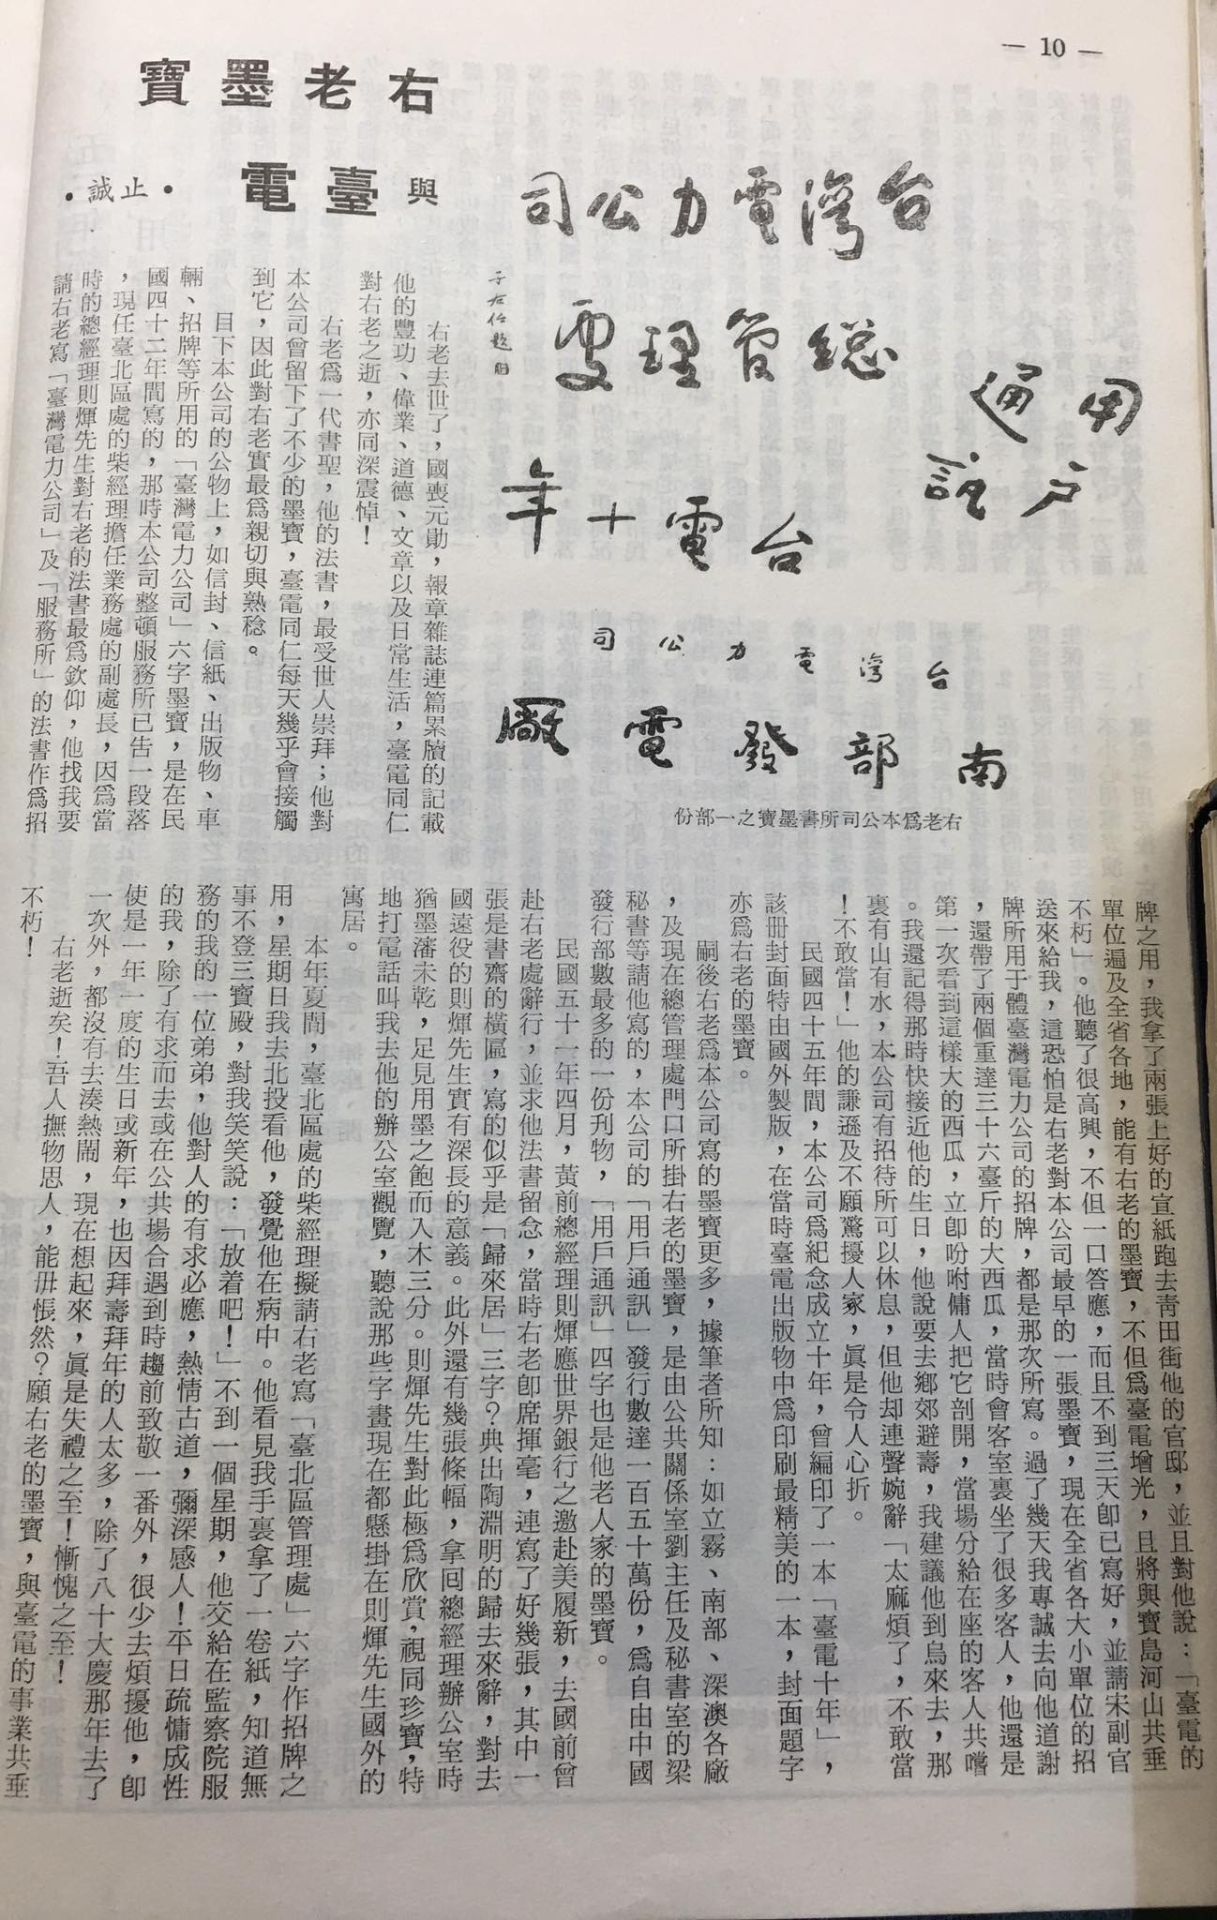 — 10 —
右老墨寶
與臺電
・止誠・
台灣電力公司
總管理處
于右任題
用戶
通訊
台電十年
台灣電力公司
南部發電廠
右老爲本公司所書墨寶之一部份
右老去世了，國喪元勛，報章雜誌連篇累牘的記載
他的豐功、偉業、道德、文章以及日常生活，臺電同仁
對右老之逝，亦同深震悼！
右老爲一代書聖，他的法書，最受世人崇拜；他對
本公司曾留下了不少的墨寶，臺電同仁每天幾乎會接觸
到它，因此對右老實最爲親切與熟稔。
目下本公司的公物上，如信封、信紙、出版物、車
輛、招牌等所用的「臺灣電力公司」六字墨寶，是在民
國四十二年間寫的，那時本公司整頓服務所已告一段落
，現任臺北區處的柴經理擔任業務處的副處長，因爲當
時的總經理則煇先生對右老的法書最爲欽仰，他找我要
請右老寫「臺灣電力公司」及「服務所」的法書作爲招
牌之用，我拿了兩張上好的宣紙跑去青田街他的官邸，並且對他說：「臺電的
單位遍及全省各地，能有右老的墨寶，不但爲臺電增光，且將與寶島河山共垂
不朽」。他聽了很高興，不但一口答應，而且不到三天卽已寫好，並請宋副官
送來給我，這恐怕是右老對本公司最早的一張墨寶，現在全省各大小單位的招
牌所用于體臺灣電力公司的招牌，都是那次所寫。過了幾天我專誠去向他道謝
，還帶了兩個重達三十六臺斤的大西瓜，當時會客室裏坐了很多客人，他還是
第一次看到這樣大的西瓜，立卽吩咐傭人把它剖開，當場分給在座的客人共嚐
。我還記得那時快接近他的生日，他說要去鄉郊避壽，我建議他到烏來去，那
裏有山有水，本公司有招待所可以休息，但他却連聲婉辭「太麻煩了，不敢當
！不敢當！」他的謙遜及不願驚擾人家，眞是令人心折。
民國四十五年間，本公司爲紀念成立十年，曾編印了一本「臺電十年」，
該冊封面特由國外製版，在當時臺電出版物中爲印刷最精美的一本，封面題字
亦爲右老的墨寶。
嗣後右老爲本公司寫的墨寶更多，據筆者所知：如立霧、南部、深澳各廠
，及現在總管理處門口所掛右老的墨寶，是由公共關係室劉主任及秘書室的梁
秘書等請他寫的，本公司的「用戶通訊」發行數達一百五十萬份，爲自由中國
發行部數最多的一份刊物，「用戶通訊」四字也是他老人家的墨寶。
民國五十一年四月，黃前總經理則煇應世界銀行之邀赴美履新，去國前曾
赴右老處辭行，並求他法書留念，當時右老卽席揮毫，連寫了好幾張，其中一
張是書齋的橫匾，寫的似乎是「歸來居」三字？典出陶淵明的歸去來辭，對去
國遠役的則煇先生實有深長的意義。此外還有幾張條幅，拿回總經理辦公室時
猶墨瀋未乾，足見用墨之飽而入木三分。則煇先生對此極爲欣賞，視同珍寶，特
地打電話叫我去他的辦公室觀覽，聽說那些字畫現在都懸掛在則煇先生國外的
寓居。
本年夏間，臺北區處的柴經理擬請右老寫「臺北區管理處」六字作招牌之
用，星期日我去北投看他，發覺他在病中。他看見我手裏拿了一卷紙，知道無
事不登三寶殿，對我笑笑說：「放着吧！」不到一個星期，他交給在監察院服
務的我的一位弟弟，他對人的有求必應，熱情古道，彌深感人！平日疏慵成性
的我，除了有求而去或在公共場合遇到時趨前致敬一番外，很少去煩擾他，卽
使是一年一度的生日或新年，也因拜壽拜年的人太多，除了八十大慶那年去了
一次外，都沒有去湊熱鬧，現在想起來，眞是失禮之至！慚愧之至！
右老逝矣！吾人撫物思人，能毌悵然？願右老的墨寶，與臺電的事業共垂
不朽！